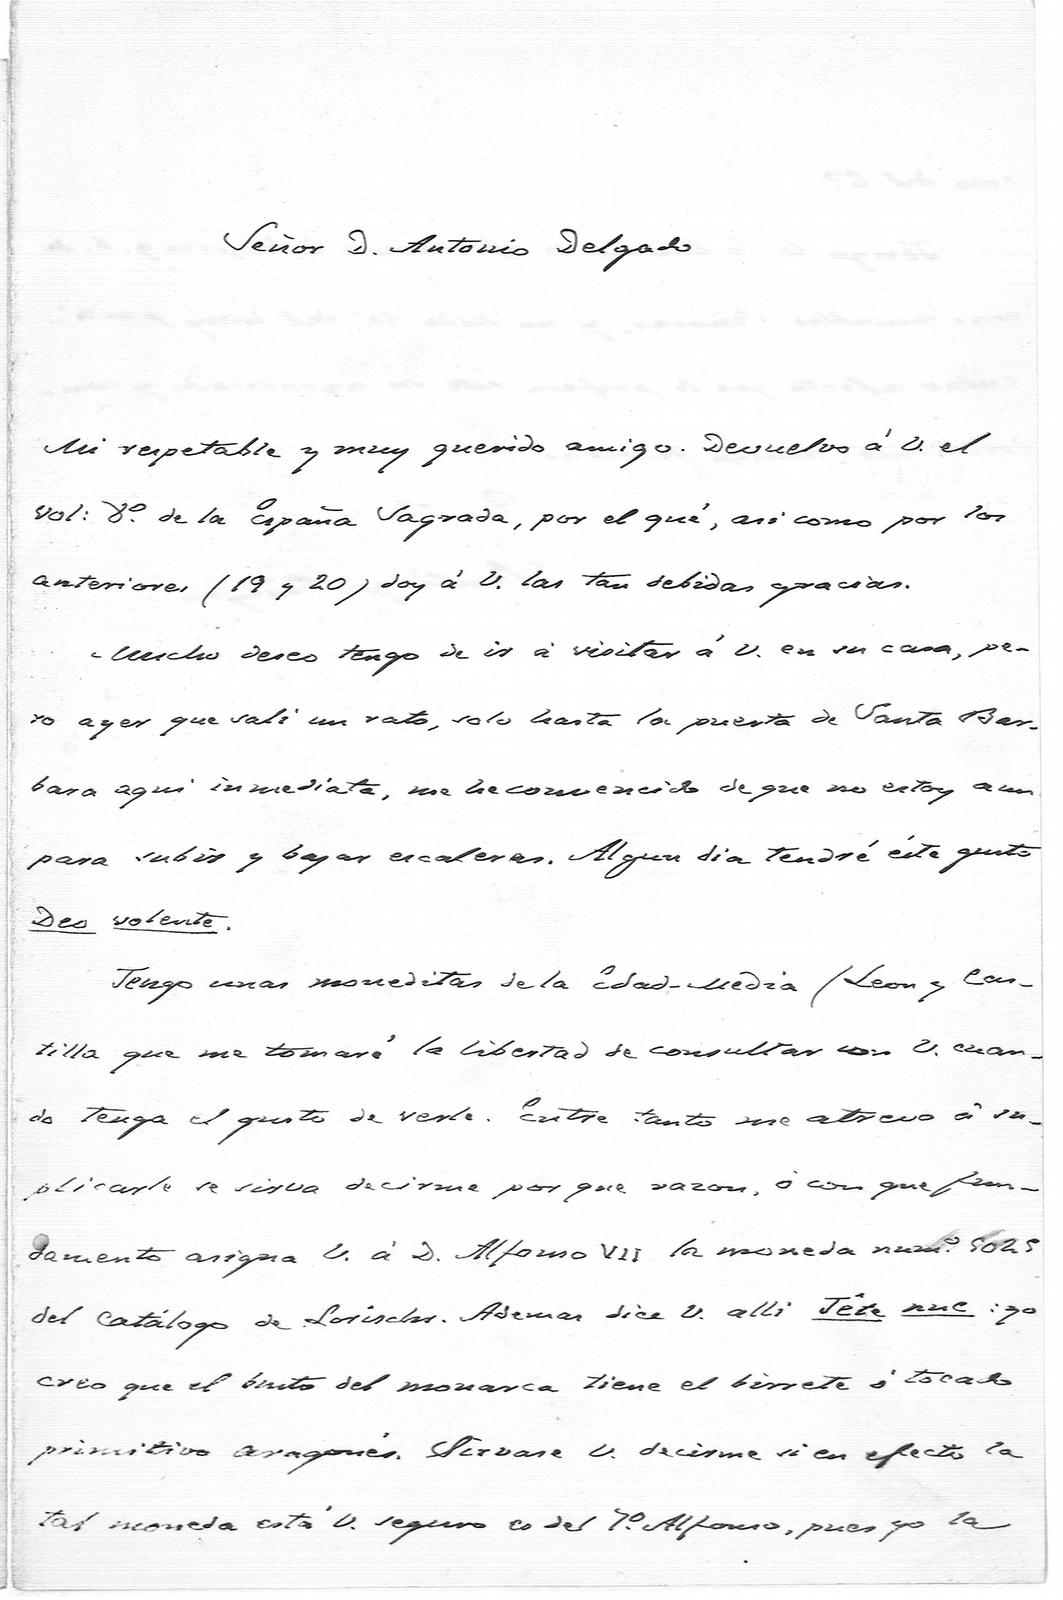 Señor D. Antonio Delgado
Mi respetable y muy querido amigo. Devuelvo á V. el
vol: 8º. de la España Sagrada, por el qué, asi como por los
anteriores (19 y 20) doy á V. las tan debidas gracias.
Mucho deseo tengo de ir á visitar á V. en su casa, pe-
ro ayer que salí un rato, solo hasta la puerta de Santa Bar-
bara aqui inmediata, me he convencido de que no estoy aun
para subir y bajar escaleras. Algun dia tendré éste gusto
Deo volente.
Tengo unas moneditas de la Edad-Media (Leon y Cas-
tilla que me tomaré la libertad de consultar con V. cuan-
do tenga el gusto de verle. Entre tanto me atrevo á su-
plicarle se sirva decirme por que razon, ó con que fun-
damento asigna V. á D. Alfonso VII la moneda numº.
del Catálogo de Lorischs. Ademas dice V. alli Tête nue : yo
creo que el busto del monarca tiene el birrete ó tocado
primitivo aragonés. Sirvase V. decirme si en efecto la
tal moneda está V. seguro es del 7º. Alfonso, pues yo la